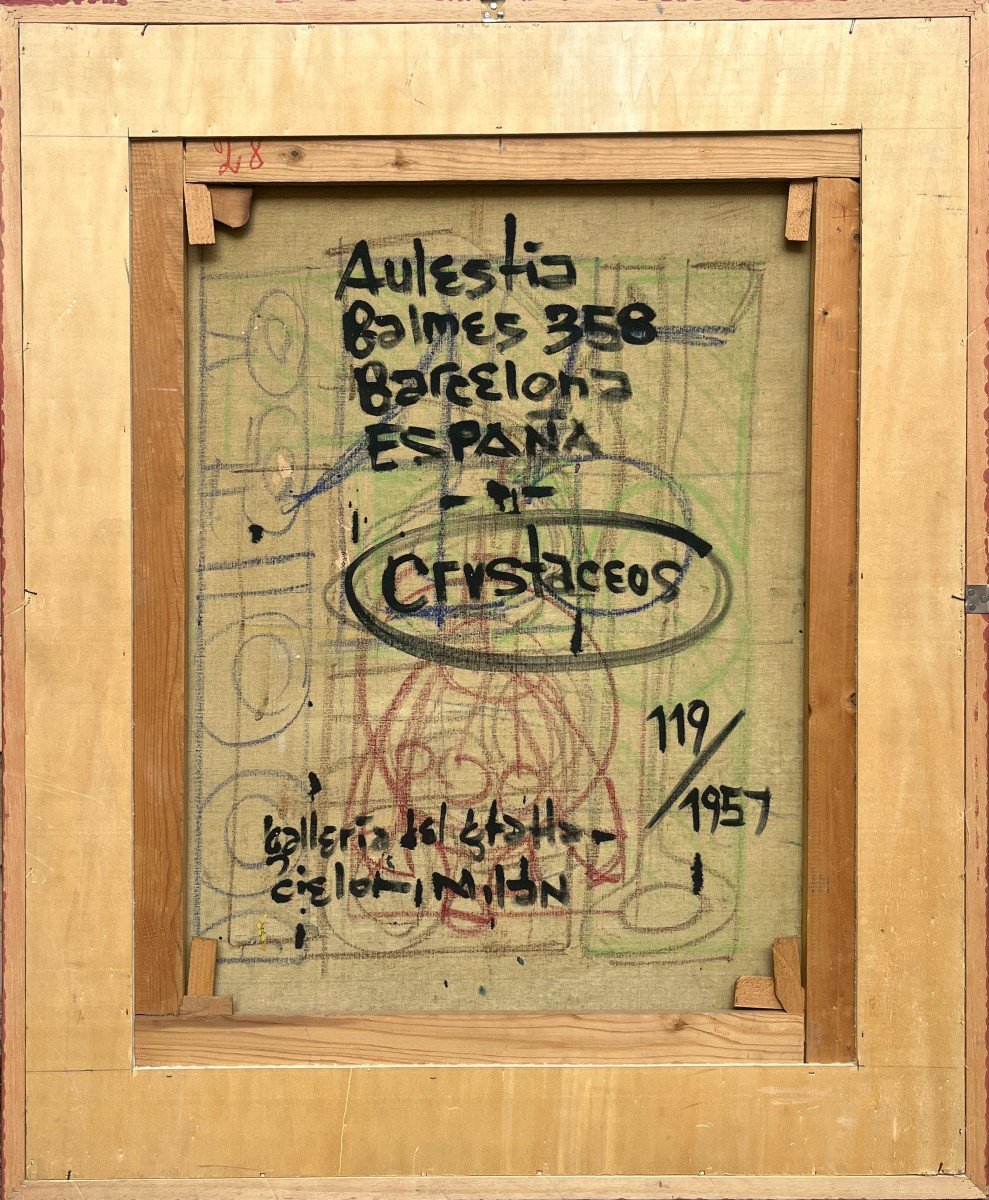 28
Aulestia
Balmes 358
Barcelona
ESPAÑA
Crustaceos
119/1957
Gallería del
Milán